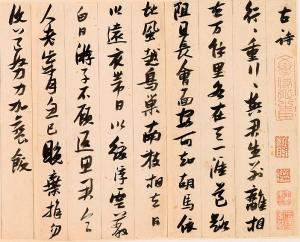 古詩
行〻重行〻與君生別離相
去万餘里各在天一涯道路
阻且長會面安可知胡馬依
北風越鳥巢南枝相去日
以遠衣帶日以緩浮雲蔽
白日游子不顧返思君令
人老歲月忽已晚棄捐勿
復道努力加餐飯